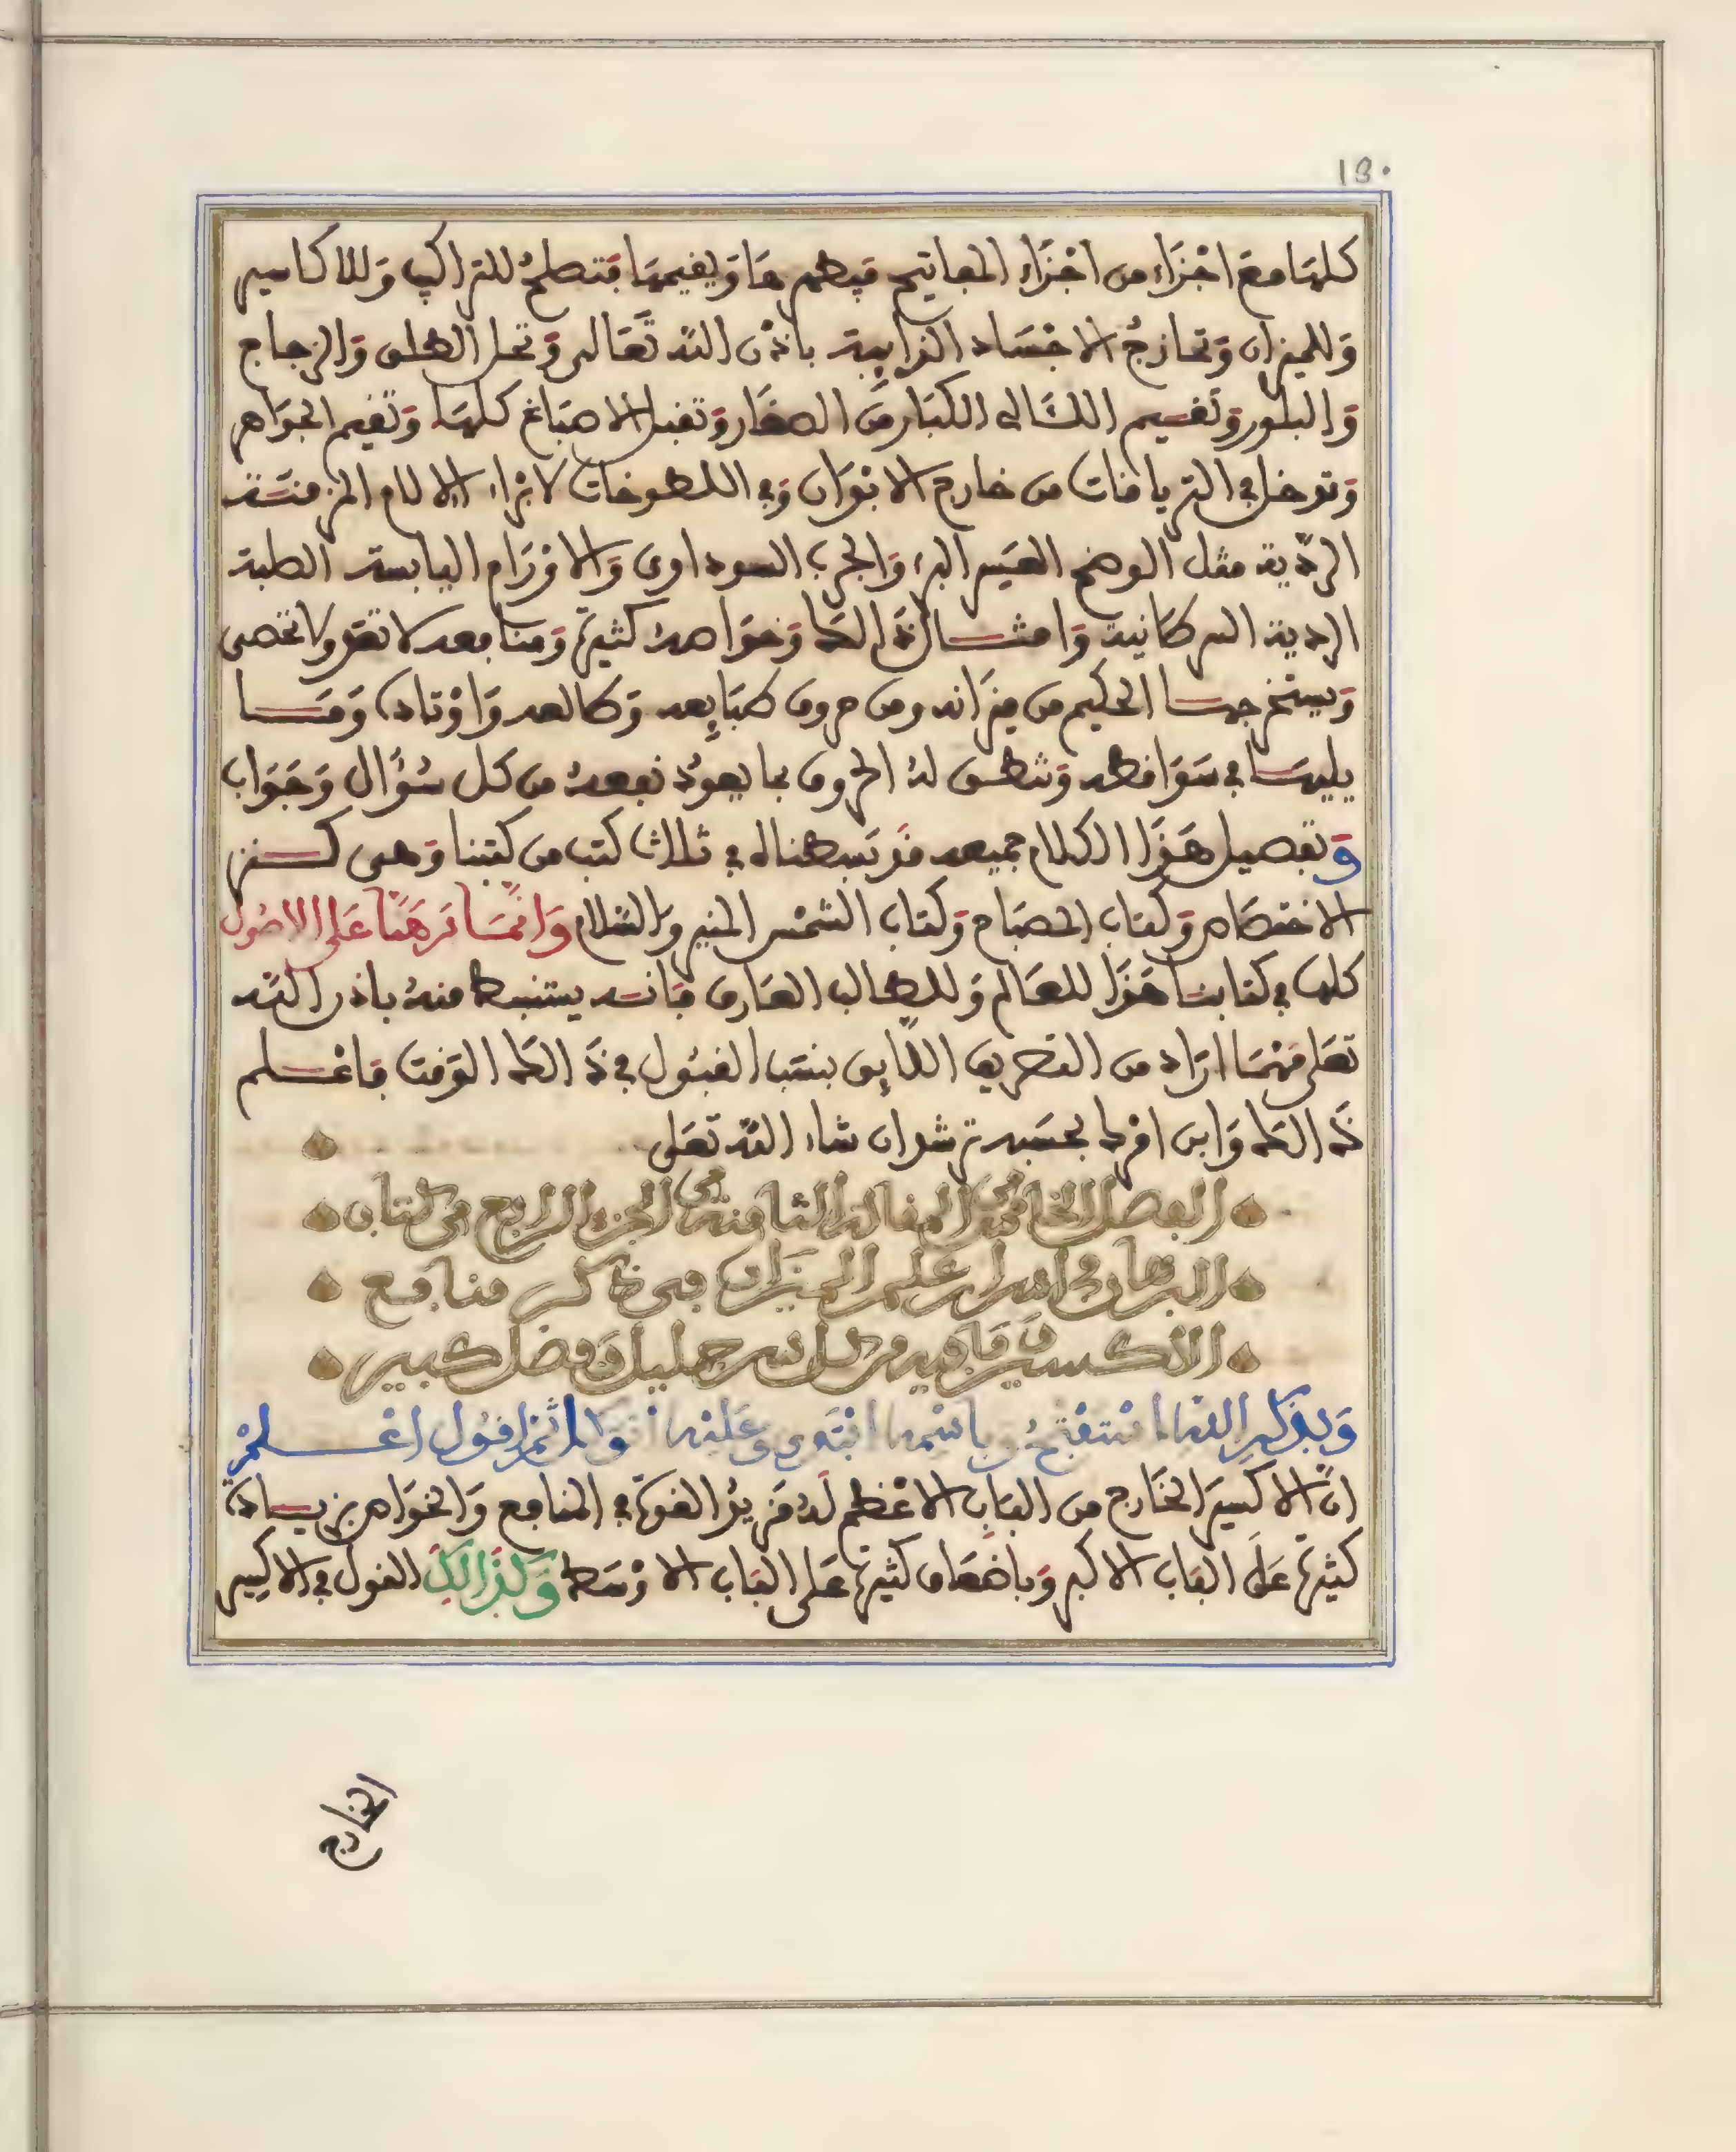 13.
كلها مع اجزاء من اجزاء المفاتيح فيطهرها ويقيمها فتصلح للتراكيب وللاكاسير
وللميزان وتمازج الاجساد الذايبة باذن الله تعالى وتحل الطلق والزجاج
والبلور وتقسيم اللئالى الكبار من الصغار وتقبل الاصباغ كلها وتقيم الجواهر
وتدخل في الترياقات من خارج الابدان وفي اللطوخات لابراء الالام المزمنة
الردية مثل الوضح العسير البرء والجرب السوداوى والاورام اليابسة الصلبة
الردية السرطانية وامثال ذالك وخواصه كثيرة ومنافعه لا تعد ولا تحصى
ويستخرجها الحكيم من ميزانه ومن حروف طبايعه وطالعه واوتاده وما
يليها في سواقطه وتنطق له الحروف بما يعود نفعه من كل سؤال وجواب
وتفصيل هذا الكلام جميعه قد بسطناه في ثلاث كتب من كتبنا وهى كنز
الاختصاص وكتاب المصباح وكتاب الشمس المنير والسلام وانما برهنا على الاصول
كلها في كتابنا هذا للعالم وللطالب العارف فانه يستنبط منه باذن الله
تعلى مهما اراد من التصريف اللايق بنسب القبول في ذالك الوقت فاعلم
ذالك وابن امرك بحسبه ترشد ان شاء الله تعلى
الفصل الخامس من المقالة الثامنة من الجزء الرابع من كتاب
البرهان في اسرار علم الميزان في ذكر منافع
الاكسير وما فيه من كل سر جليل وفضل كبير
وبذكر الله استفتح وباسمه ابتدى وعليه اتوكل ثم اقول اعلم
ان الاكسير الخارج من الباب الاعظم له مزيد القوة في المنافع والخواص بزيادة
كثيرة على الباب الاكبر وباضعاف كثيرة على الباب الاوسط وكذالك القول في الاكسير
الخارج